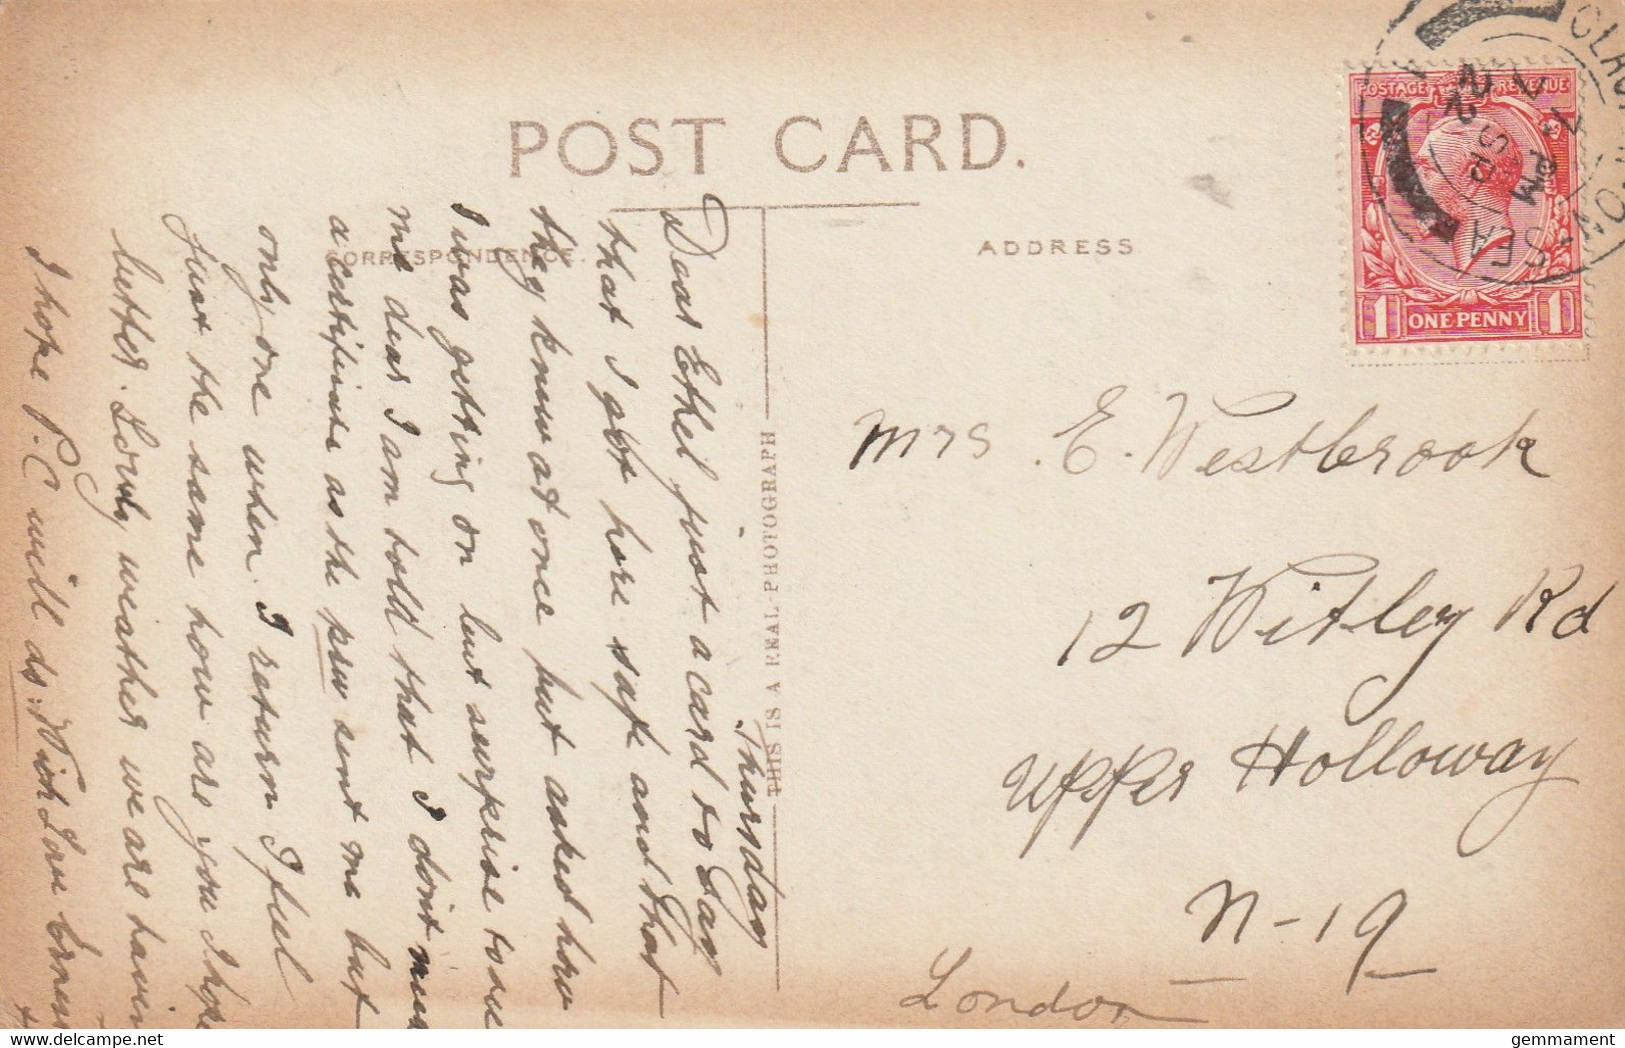 POST CARD.
CORRESPONDENCE.
ADDRESS
THIS IS A REAL PHOTOGRAPH
POSTAGE REVENUE
1 ONE PENNY 1
CLACTON-ON-SEA
PM
SP
22
Thursday
Dear Ethel just a card to say
that I got here safe and that
they knew at once but asked how
I was getting on but surprise to see
me dear I am told that I don't
a certificate as the sent me but
only one when I return I feel
just the same how are you I hope
better. Lovely weather we are
I hope P.C will do. With Love
Mrs. E. Westbrook
12 Witley Rd
Upper Holloway
N-19
London
gemmament